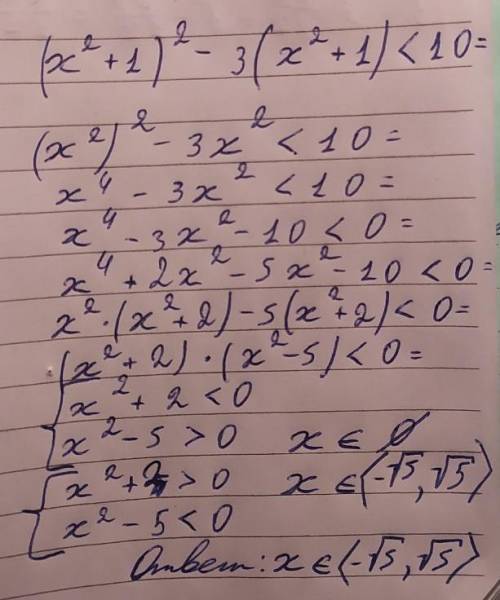 (x² + 1)² - 3(x² + 1) < 10 =
(x²)² - 3x² < 10 =
x⁴ - 3x² < 10 =
x⁴ - 3x² - 10 < 0 =
x⁴ + 2x² - 5x² - 10 < 0 =
x² · (x² + 2) - 5(x² + 2) < 0 =
(x² + 2) · (x² - 5) < 0 =
{ x² + 2 < 0
x² - 5 > 0 x ∈ ∅
{ x² + 2 > 0 x ∈ (-√5, √5)
x² - 5 < 0
Ответ: x ∈ (-√5, √5)